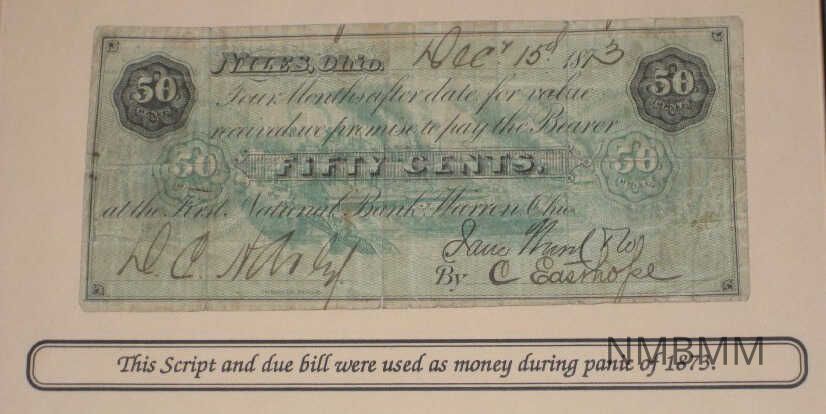 NILES, Ohio. Decr 15th 1873
50 CENTS 50 CENTS
Four Months after date for value
received we promise to pay the Bearer
50 CENTS FIFTY CENTS. 50 CENTS
at the First National Bank Warren Ohio
James Ward & Co
By C Easthope
This Script and due bill were used as money during panic of 1873.
NMBMM